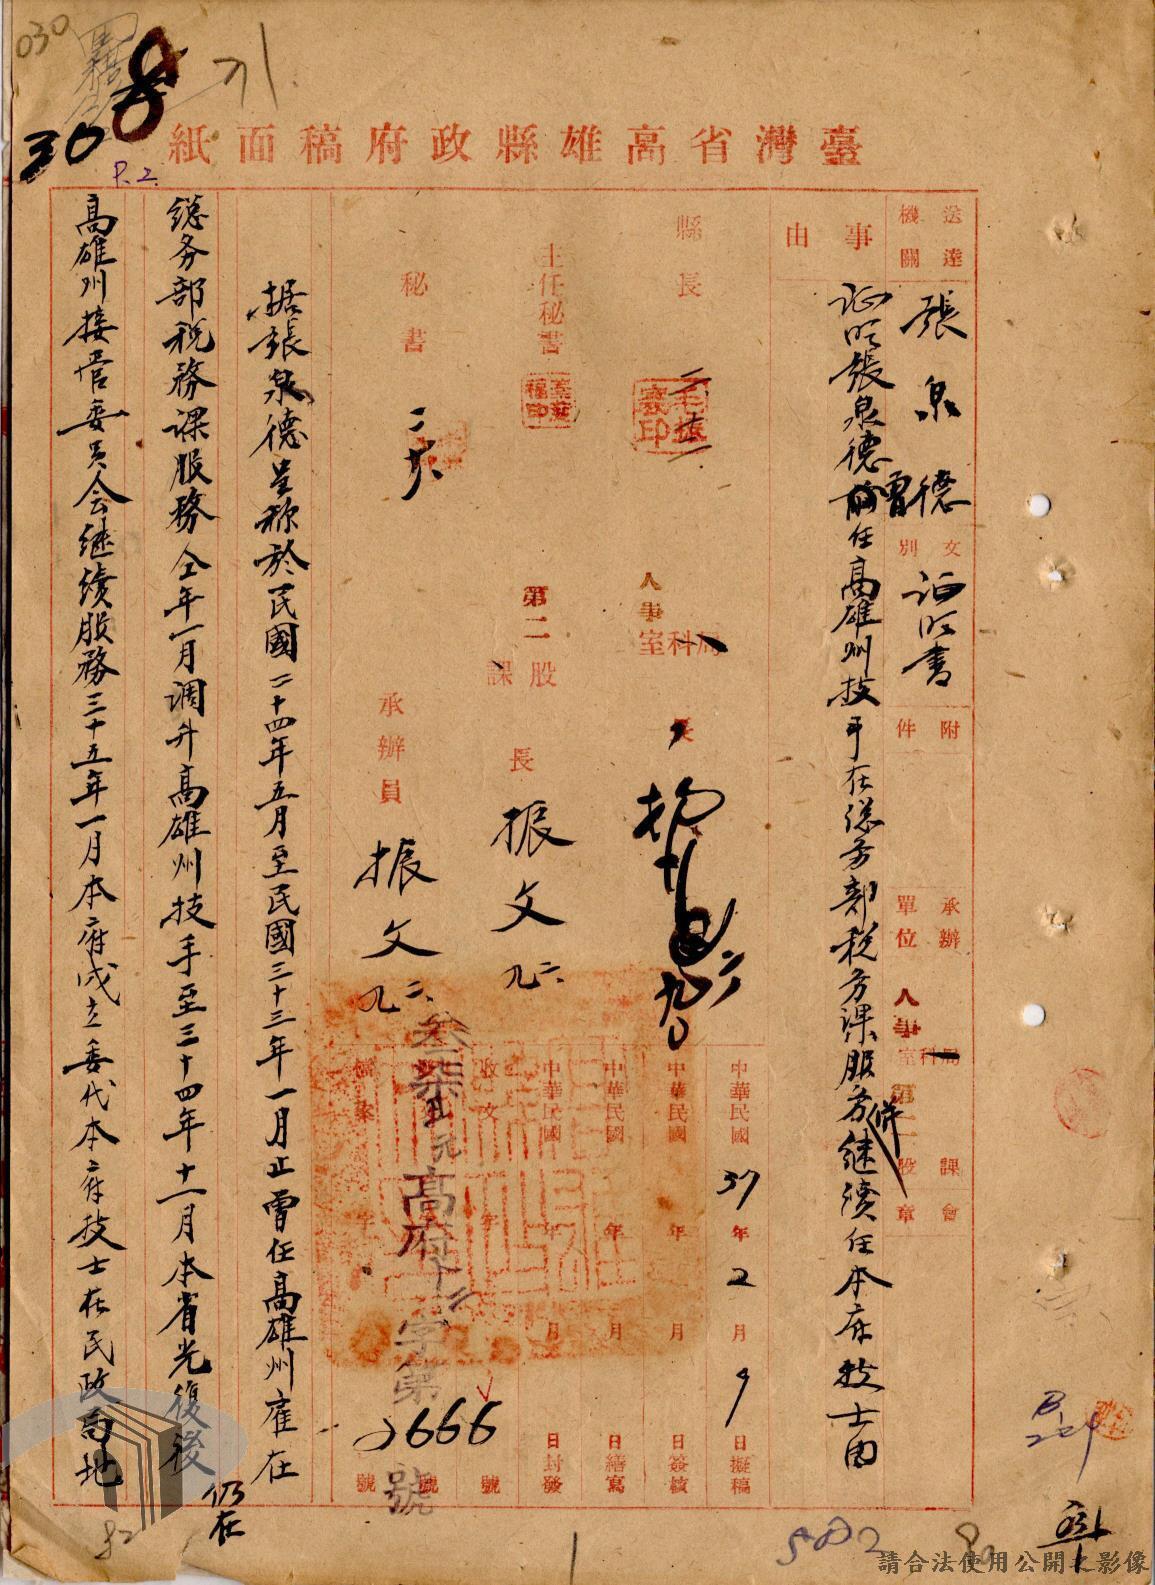 臺灣省高雄縣政府稿面紙
送達機關
張泉德
文別
証明書
附件
承辦單位
人事室科局
第二股課
會章
事由
証明張泉德曾任高雄州技手在総务部税务课服务併继续任本府技士由
縣長
主任秘書
秘書
人事室科局長
第二課股長
振文
九二
承辦員
振文
九二
中華民國37年2月9日擬稿
中華民國 年 月 日簽核
中華民國 年 月 日繕寫
中華民國 年 月 日封發
收文 字 號
檔案 字 號
叁柒丑元高府人二字第 號
2666
据張泉德呈称於民國二十四年五月至民國三十三年一月止曾任高雄州雇在
総务部税務课服務仝年一月调升高雄州技手至三十四年十一月本省光復後仍在
高雄州接管委員会继續服務三十五年一月本府成立委代本府技士在民政局地
030
308
P.2.
請合法使用公開之影像